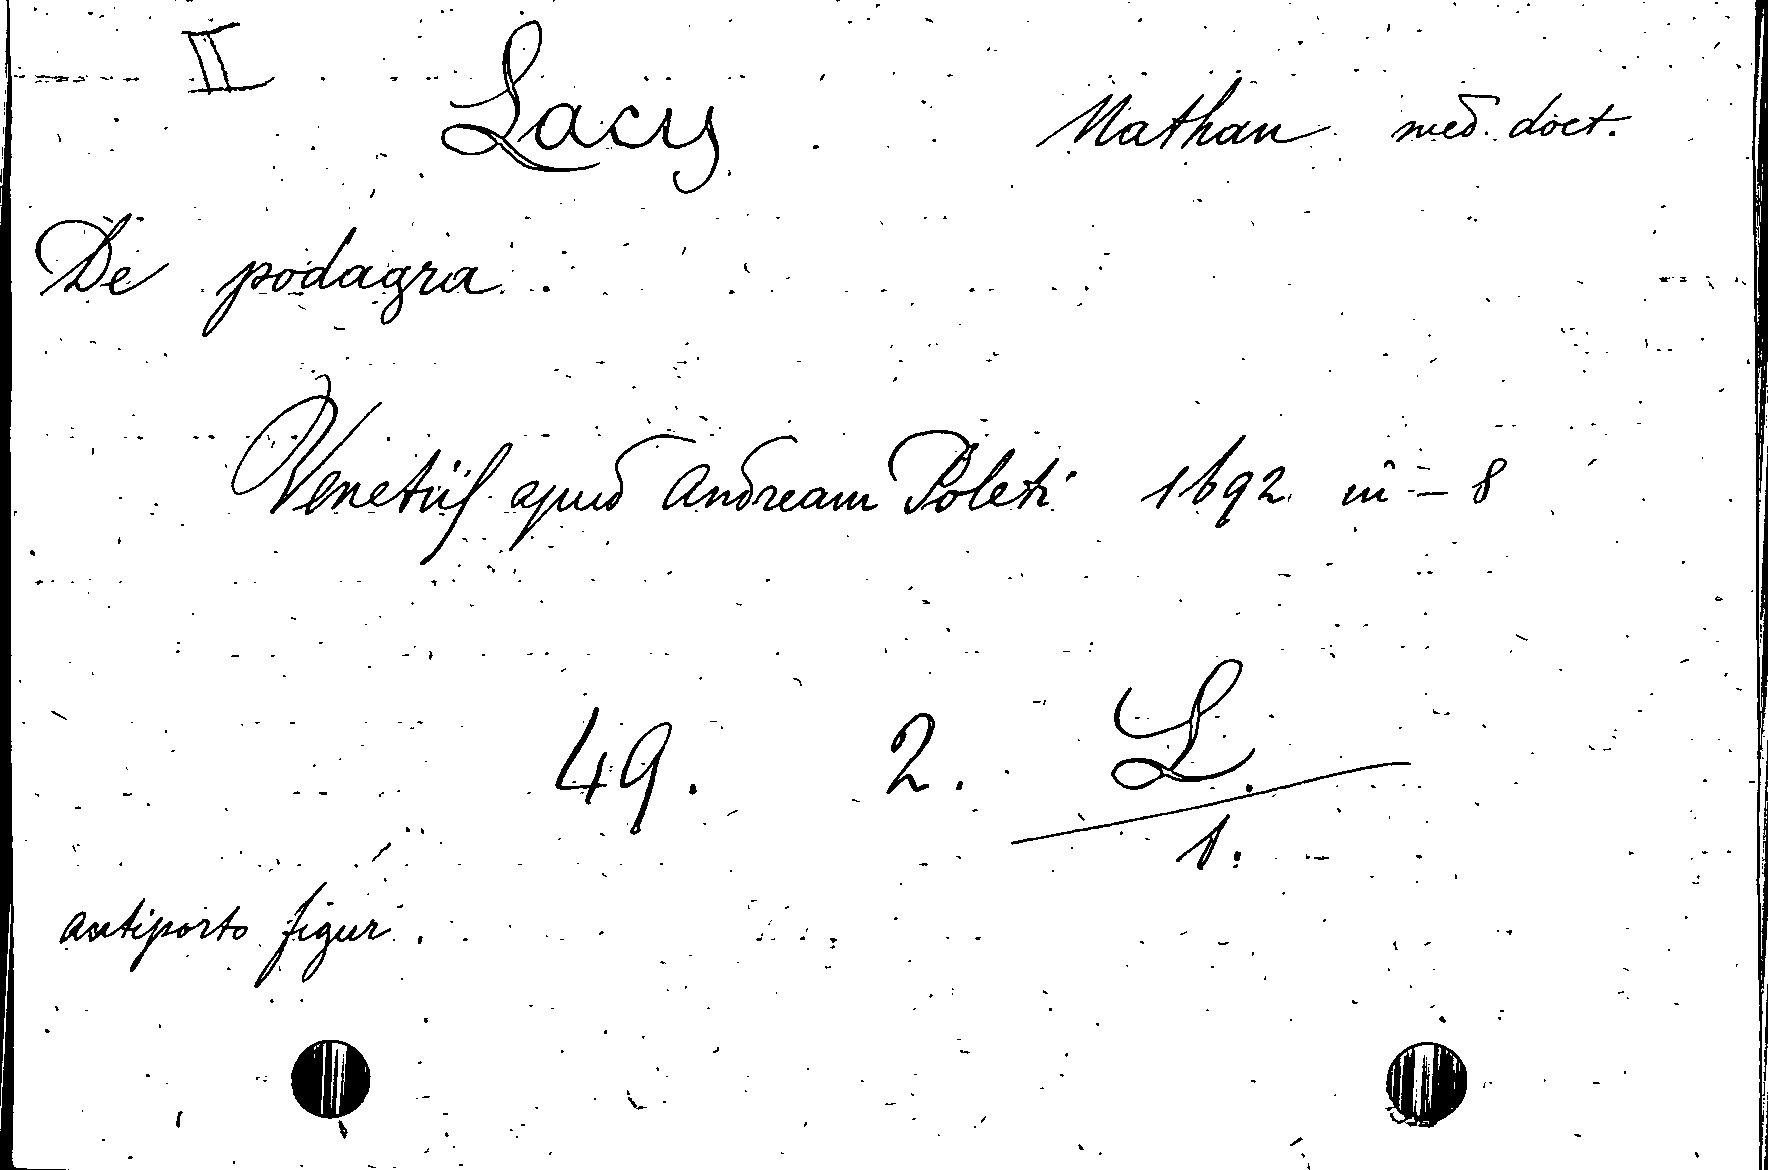 II
Lacy Nathan med. doct.
De podagra.
Venetiis apud Andream Poleti 1692 in - 8
49. 2. L.
1.
antiporto figur.